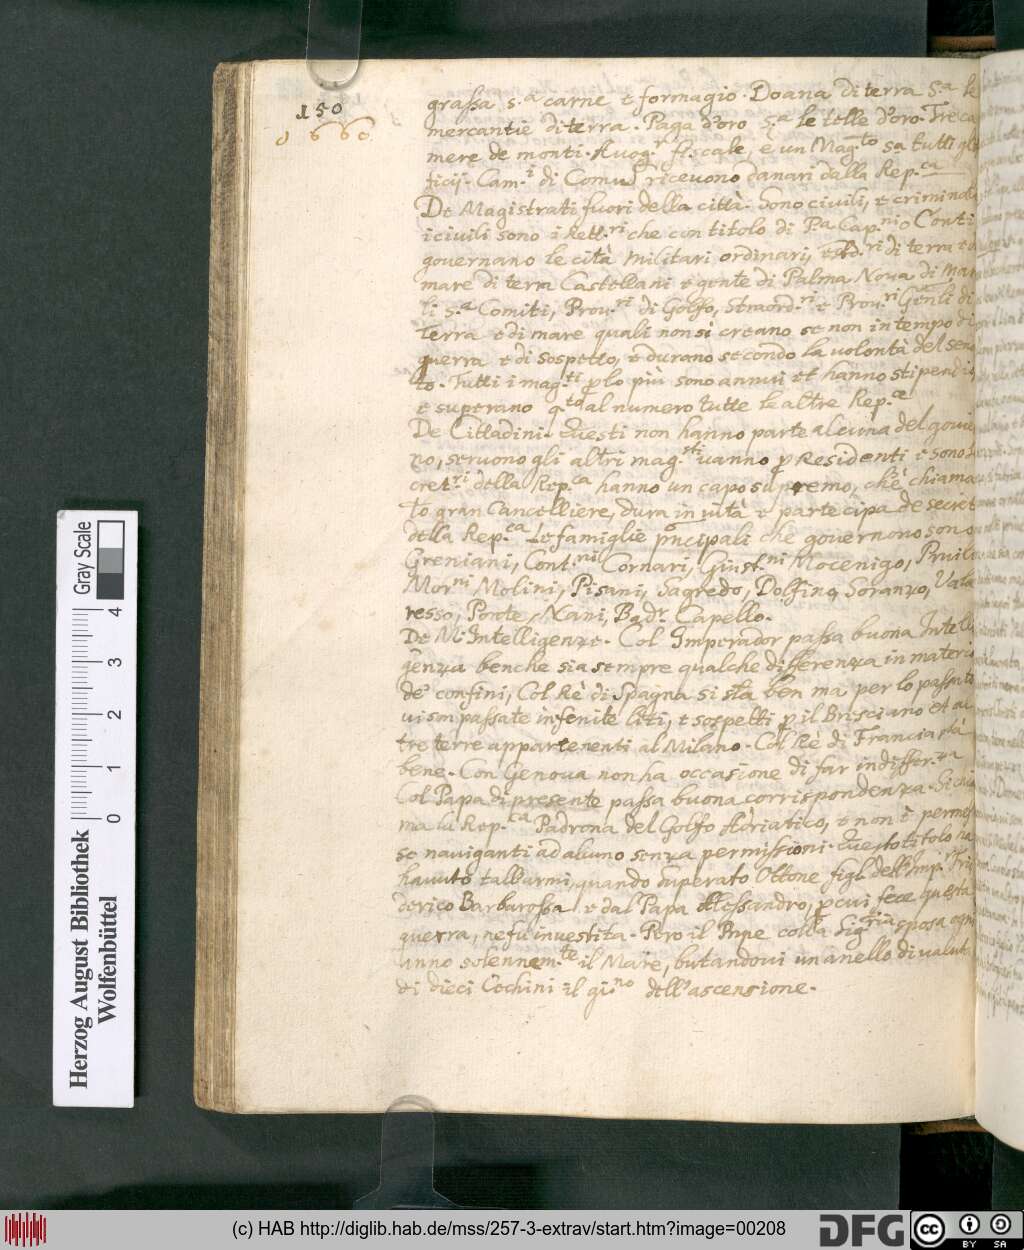 150
1660
grassa s.a carne e formagio. Doana di terra S.a le
mercantie di terra. Paga d'oro s.a le telle d'oro. Tre ca
mere de monti. Avog.r fiscale, e un Mag.to sa tutti gli
ficij. Cam.i di Comu ricevono danari dalla Rep.ca
De Magistrati fuori della città. Sono civili, e criminali
i civili sono i Rett.ri che con titolo di Pa Cap.nio Conti
governano le cità Militari ordinarij, di terra e di
mare di terra Castellani e gente di Palma Nova di Mar
li s.a Comiti, Prov.ri di Golfo, Straord.ri e Prov.ri Gen.li di
Terra e di mare quali non si creano se non in tempo di
guerra e di sospetto, e durano secondo la volontà del sena
to. Tutti i mag.ti plo più sono annui et hanno stipendio
e superano q.to al numero tutte le altre Rep.ce
De Cittadini. Questi non hanno parte alcuna del gover
no, servono gli altri mag.sti vanno p Residenti e sono se
cret.ri della Rep.ca hanno un capo supremo, che chiama
to gran Cancelliere, dura in vità e partecipa de secreti
della Rep.ca Le famiglie pncipali che governono sono
Greniani, Cont.ni Cornari, Giust.ni Mocenigo, Priuli
Mor.ni Molini, Pisani, Sagredo, Dolfino Soranzo, Vala
resso, Ponte, Nani, Badr. Capello.
De M. Intelligenze. Col Imperador passa buona Intelli
genza benche sia sempre qualche differenza in materia
de' confini, Col Rè di Spagna si sta ben ma per lo passato
vi son passate infenite liti, e sospetti p il Brisciano et al
tre terre appartenenti al Milano. Col Rè di Francia stà
bene. Con Genova non ha occasione di far indiffer.za
Col Papa di presente passa buona corrispondenza. Si chia
ma la Rep.ca Padrona del Golfo Adriatico, e non è permes
so naviganti ad alcuno senza permissioni. Questo titolo ha
havuto tall'armi, quando superato Ottone figl. dell'Imp. Fri
derico Barbarossa, e dal Papa Alessandro, p cui fece questa
guerra, ne fu investita. Pero il Pnpe colla Sig.ria sposa ogni
anno solennem.te il Mare, butandovi un anello di valuta
di dieci Cechini il gi.no dell'ascensione.
Herzog August Bibliothek
Wolfenbüttel
Gray Scale
0 1 2 3 4
(c) HAB http://diglib.hab.de/mss/257-3-extrav/start.htm?image=00208
DFG
cc BY SA